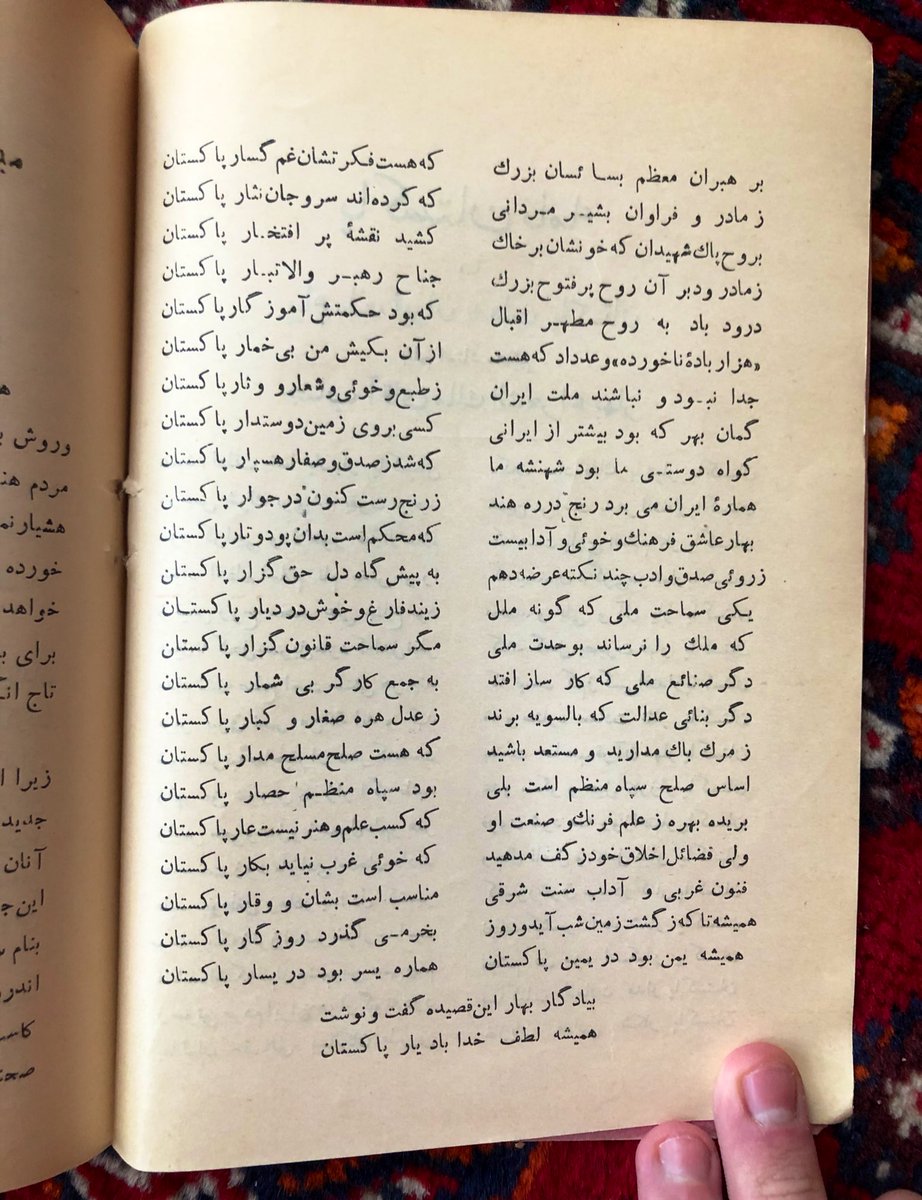 بر هبران معظم بسا ئسان بزرك که هست فکر تشان غم گسار پاکستان
ز مادر و فراوان بشیر مردانی که کرده‌اند سروجان نثار پاکستان
بروح پاك شهیدان که خونشان برخاك کشید نقشهٔ پر افتخار پاکستان
زمادر ودبر آن روح پرفتوح بزرك جناح رهبر والاتبار پاکستان
درود باد به روح مطهر اقبال که بود حکمتش آموزگار پاکستان
«هزار بادهٔ ناخورده» وعدداد که هست از آن بکیش من بی‌خمار پاکستان
جدا نبود و نباشند ملت ایران زطبع وخوئی وشعار و وثار پاکستان
گمان بهر که بود بیشتر از ایرانی کسی بروی زمین دوستدار پاکستان
گواه دوستی ما بود شهنشه ما که شد زصدق وصفار هسپار پاکستان
همارهٔ ایران می برد رنج درره هند زرنج رست کنون درجوار پاکستان
بهار عاشق فرهنك وخوئی و آدابیست که محکم است بدان پودوتار پاکستان
زروئی صدق وادب چند نکته عرضه دهم به پیش گاه دل حق گزار پاکستان
یکی سماحت ملی که گونه ملل زیند فارغ وخوش در دیار پاکستان
که ملك را نرساند بوحدت ملی مگر سماحت قانون گزار پاکستان
دگر صنائع ملی که کار ساز افتد به جمع کارگر بی شمار پاکستان
دگر بنائی عدالت که بالسویه برند ز عدل هره صغار و کبار پاکستان
ز مرك باك مدارید و مستعد باشید که هست صلح مسلح مدار پاکستان
اساس صلح سپاه منظم است بلی بود سپاه منظم حصار پاکستان
بریده بهره ز علم فرنك و صنعت او که کسب علم و هنر نیست عار پاکستان
ولی فضائل اخلاق خود ز کف مدهید که خوئی غرب نیاید بکار پاکستان
فنون غربی و آداب سنت شرقی مناسب است بشان و وقار پاکستان
همیشه تا که ز گشت زمین شب آید و روز بخرمی گذرد روزگار پاکستان
همیشه یمن بود در یمین پاکستان هماره یسر بود در یسار پاکستان
بیادگار بهار این قصیده گفت و نوشت
همیشه لطف خدا باد یار پاکستان
وروش
مردم
خورده
خواهد
برای
تاج
زیرا
جدید
آنان
بنام